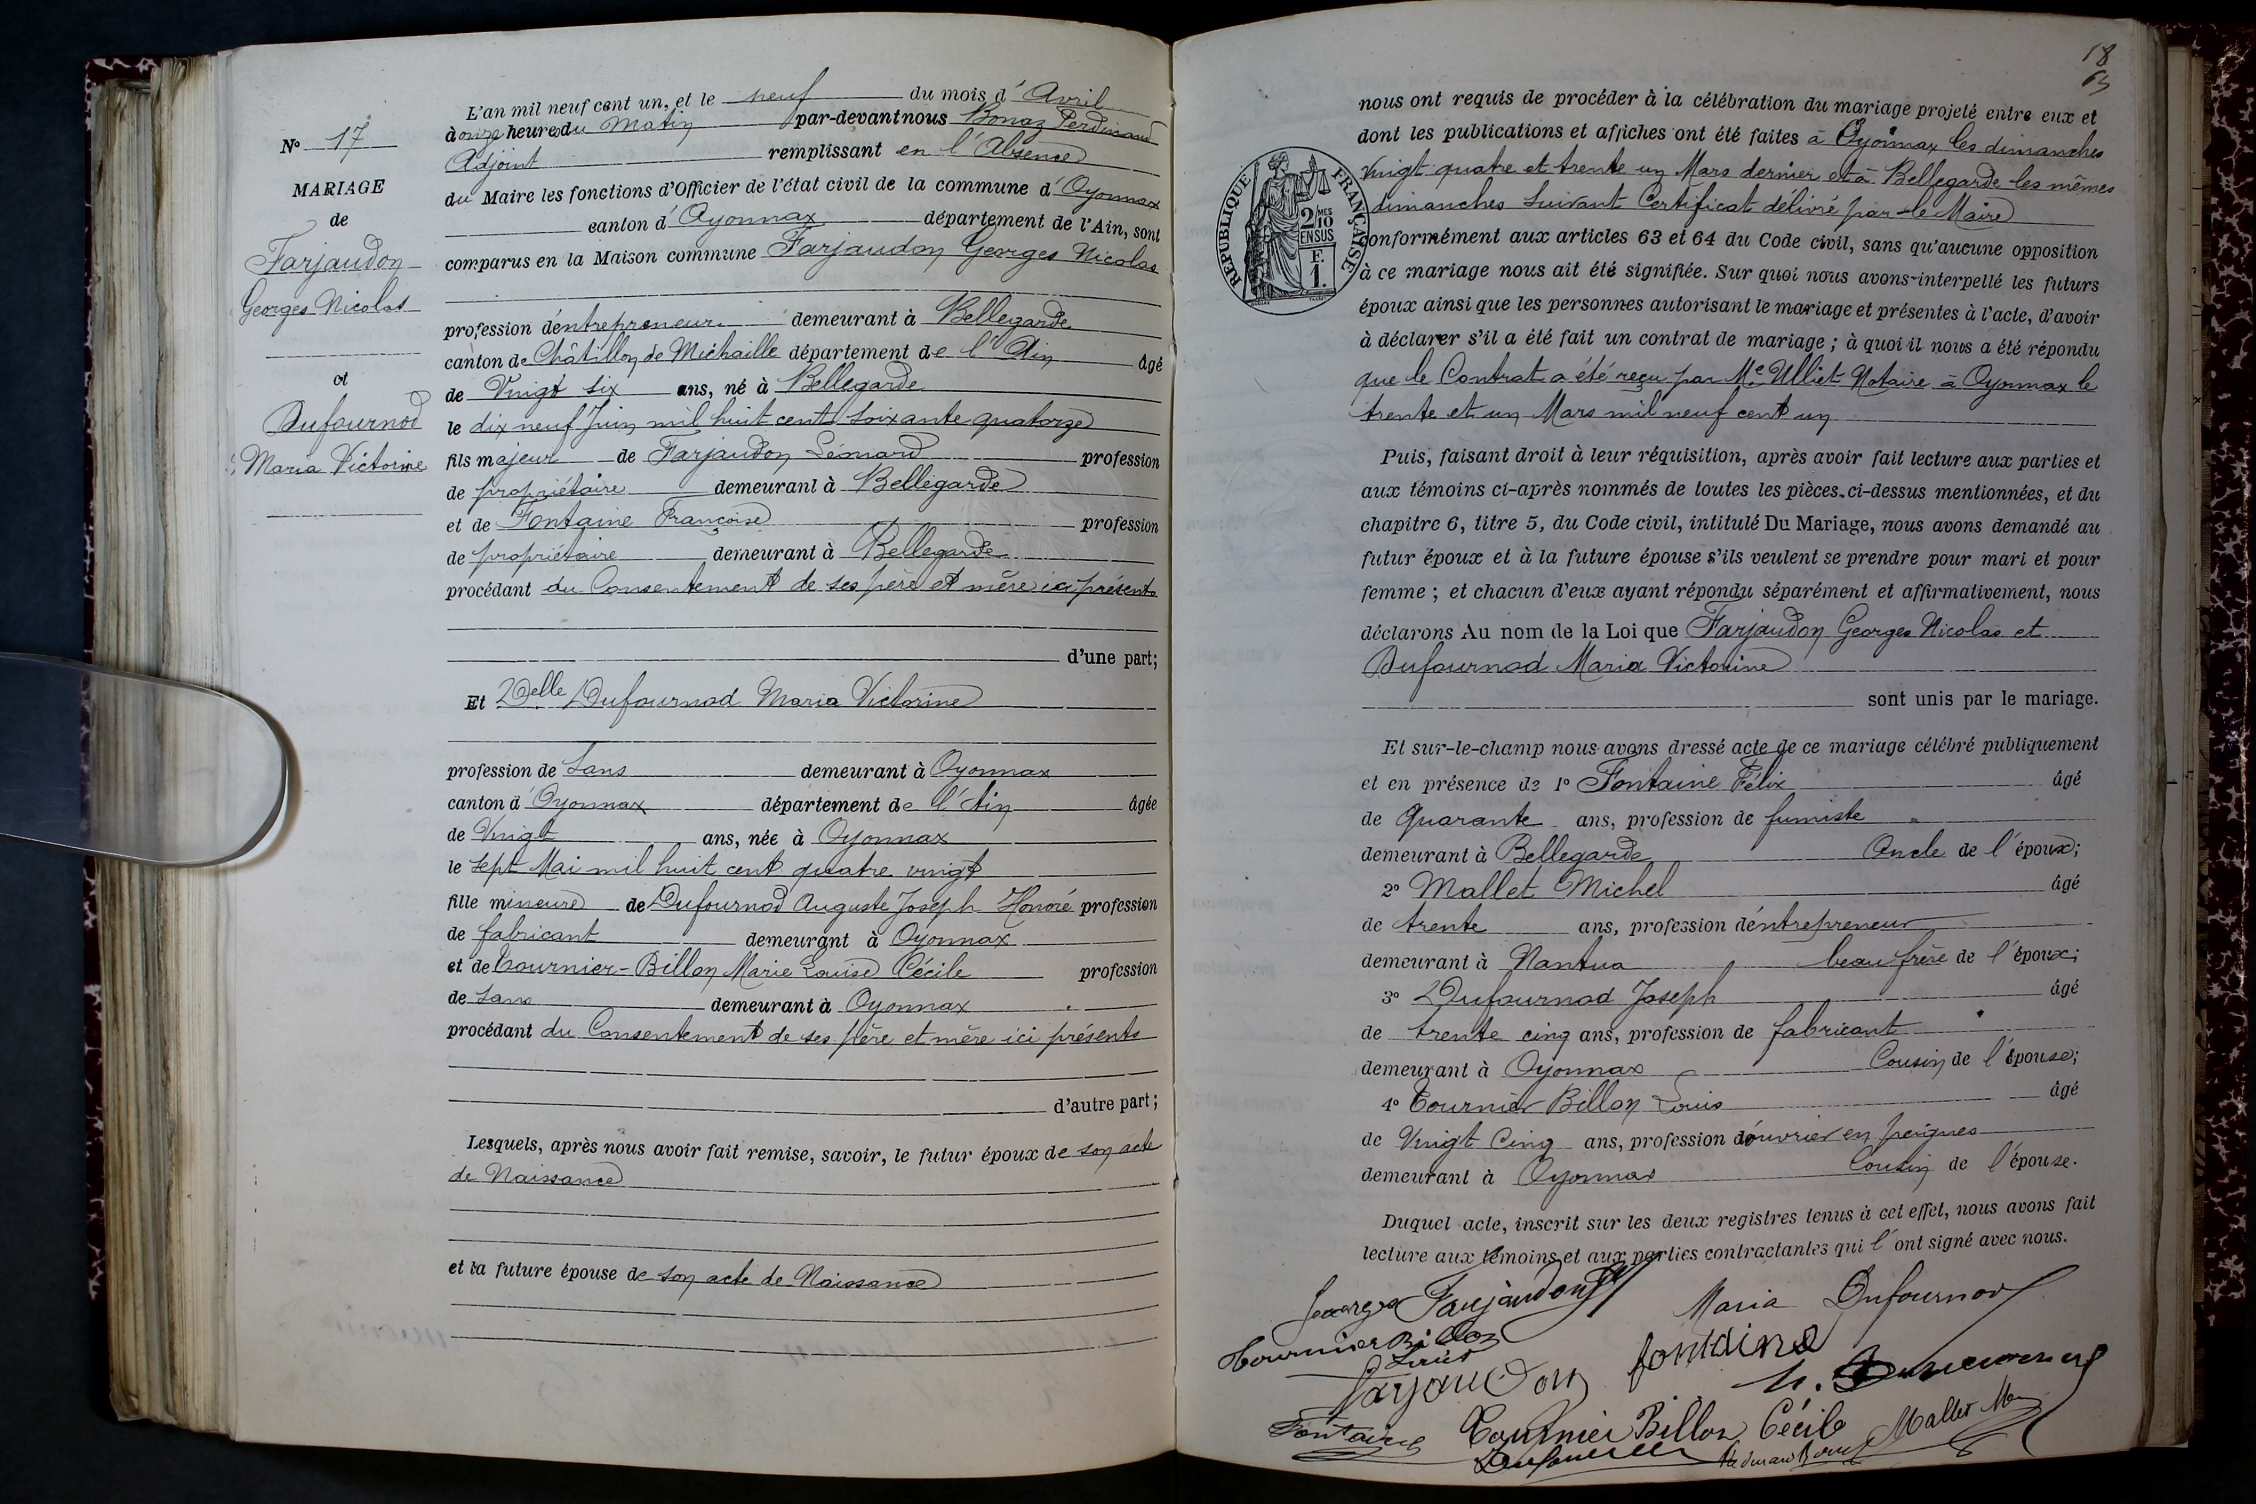 N° 17
MARIAGE
de
Farjaudon
Georges Nicolas
et
Dufournod
Maria Victorine
L'an mil neuf cent un, et le neuf du mois d' Avril
à onze heures du Matin par-devant nous Bonaz Ferdinand
Adjoint remplissant en l'Absence
du Maire les fonctions d'Officier de l'état civil de la commune d' Oyonnax
canton d' Oyonnax département de l'Ain, sont
comparus en la Maison commune Farjaudon Georges Nicolas
profession d'entrepreneur demeurant à Bellegarde
canton de Châtillon de Michaille département de l'Ain âgé
de Vingt six ans, né à Bellegarde
le dix neuf Juin mil huit cent soixante quatorze
fils majeur de Farjaudon Léonard profession
de propriétaire demeurant à Bellegarde
et de Fontaine Françoise profession
de propriétaire demeurant à Bellegarde
procédant du Consentement de ses père et mère ici présents
d'une part;
Et Delle Dufournod Maria Victorine
profession de sans demeurant à Oyonnax
canton d' Oyonnax département de l'Ain âgée
de Vingt ans, née à Oyonnax
le sept Mai mil huit cent quatre vingt
fille mineure de Dufournod Auguste Joseph Honoré profession
de fabricant demeurant à Oyonnax
et de Tournier-Billon Marie Louise Cécile profession
de sans demeurant à Oyonnax
procédant du Consentement de ses père et mère ici présents
d'autre part;
Lesquels, après nous avoir fait remise, savoir, le futur époux de son acte
de Naissance
et la future épouse de son acte de Naissance
18
63
nous ont requis de procéder à la célébration du mariage projeté entre eux et
dont les publications et affiches ont été faites à Oyonnax les dimanches
vingt quatre et trente un Mars dernier et à Bellegarde les mêmes
dimanches suivant Certificat délivré par le Maire
conformément aux articles 63 et 64 du Code civil, sans qu'aucune opposition
à ce mariage nous ait été signifiée. Sur quoi nous avons interpellé les futurs
époux ainsi que les personnes autorisant le mariage et présentes à l'acte, d'avoir
à déclarer s'il a été fait un contrat de mariage ; à quoi il nous a été répondu
que le Contrat a été reçu par Me Ulliet Notaire à Oyonnax le
trente et un Mars mil neuf cent un
RÉPUBLIQUE FRANÇAISE
2/10 MES
EN SUS
F.
1.
Puis, faisant droit à leur réquisition, après avoir fait lecture aux parties et
aux témoins ci-après nommés de toutes les pièces ci-dessus mentionnées, et du
chapitre 6, titre 5, du Code civil, intitulé Du Mariage, nous avons demandé au
futur époux et à la future épouse s'ils veulent se prendre pour mari et pour
femme ; et chacun d'eux ayant répondu séparément et affirmativement, nous
déclarons Au nom de la Loi que Farjaudon Georges Nicolas et
Dufournod Maria Victorine
sont unis par le mariage.
Et sur-le-champ nous avons dressé acte de ce mariage célébré publiquement
et en présence de 1° Fontaine Félix âgé
de Quarante ans, profession de fumiste
demeurant à Bellegarde Oncle de l'époux;
2° Mallet Michel âgé
de trente ans, profession d'entrepreneur
demeurant à Nantua beau frère de l'époux;
3° Dufournod Joseph âgé
de trente cinq ans, profession de fabricant
demeurant à Oyonnax Cousin de l'épouse;
4° Tournier Billon Louis âgé
de Vingt Cinq ans, profession d'ouvrier en peignes
demeurant à Oyonnax Cousin de l'épouse.
Duquel acte, inscrit sur les deux registres tenus à cet effet, nous avons fait
lecture aux témoins et aux parties contractantes qui l'ont signé avec nous.
Georges Farjaudon Maria Dufournod
Tournier Billon
Louis
Farjaudon fontaine
Fontaine Tournier Billon Cécile Mallet